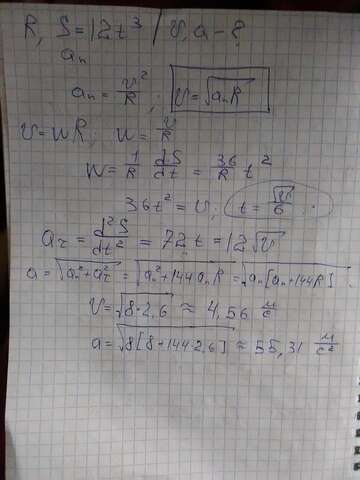 R, S=12t³ / v, a - ?
aₙ
aₙ = v²/R ; v=√aₙR
v=wR; w= v/R
w= 1/R dS/dt = 36/R t²
36t²=v; t= √v/6 .
a_τ= d²S/dt² = 72t =12√v
a=√aₙ²+a_τ² =√aₙ²+144aₙR =√aₙ[aₙ+144R] .
v=√8·2,6 ≈ 4,56 м/с
a=√8[8+144·2,6] ≈ 55,31 м/с²